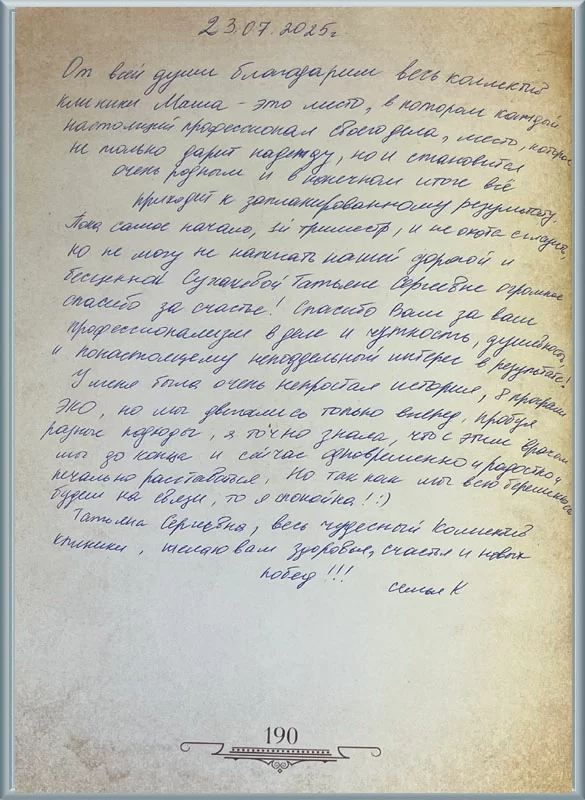 23.07.2025г.
От всей души благодарим весь коллектив
клиники Мама - это место, в котором каждый
настоящий профессионал своего дела, место, которое
не только дарит надежду, но и становится
очень родным и в конечном итоге всё
приходит к запланированному результату.
Пока самое начало, 1й триместр, и не охота сглазить,
но не могу не написать нашей дорогой и
бесценной Сухачевой Татьяне Сергеевне огромное
спасибо за счастье! Спасибо Вам за ваш
профессионализм в деле и чуткость, душевность,
и понастоящему неподдельный интерес в результате!
У меня была очень непростая история, 8 програм
ЭКО, но мы двигались только вперед, пробуя
разные подходы, я точно знала, что с этим врачом
мы до конца и сейчас одновременно и радостно и
печально расставаться. Но так как мы всю беременность
будем на связи, то я спокойна! :)
Татьяна Сергеевна, весь чудесный Коллектив
клиники, желаю вам здоровья, счастья и новых
побед!!!
семья К
190